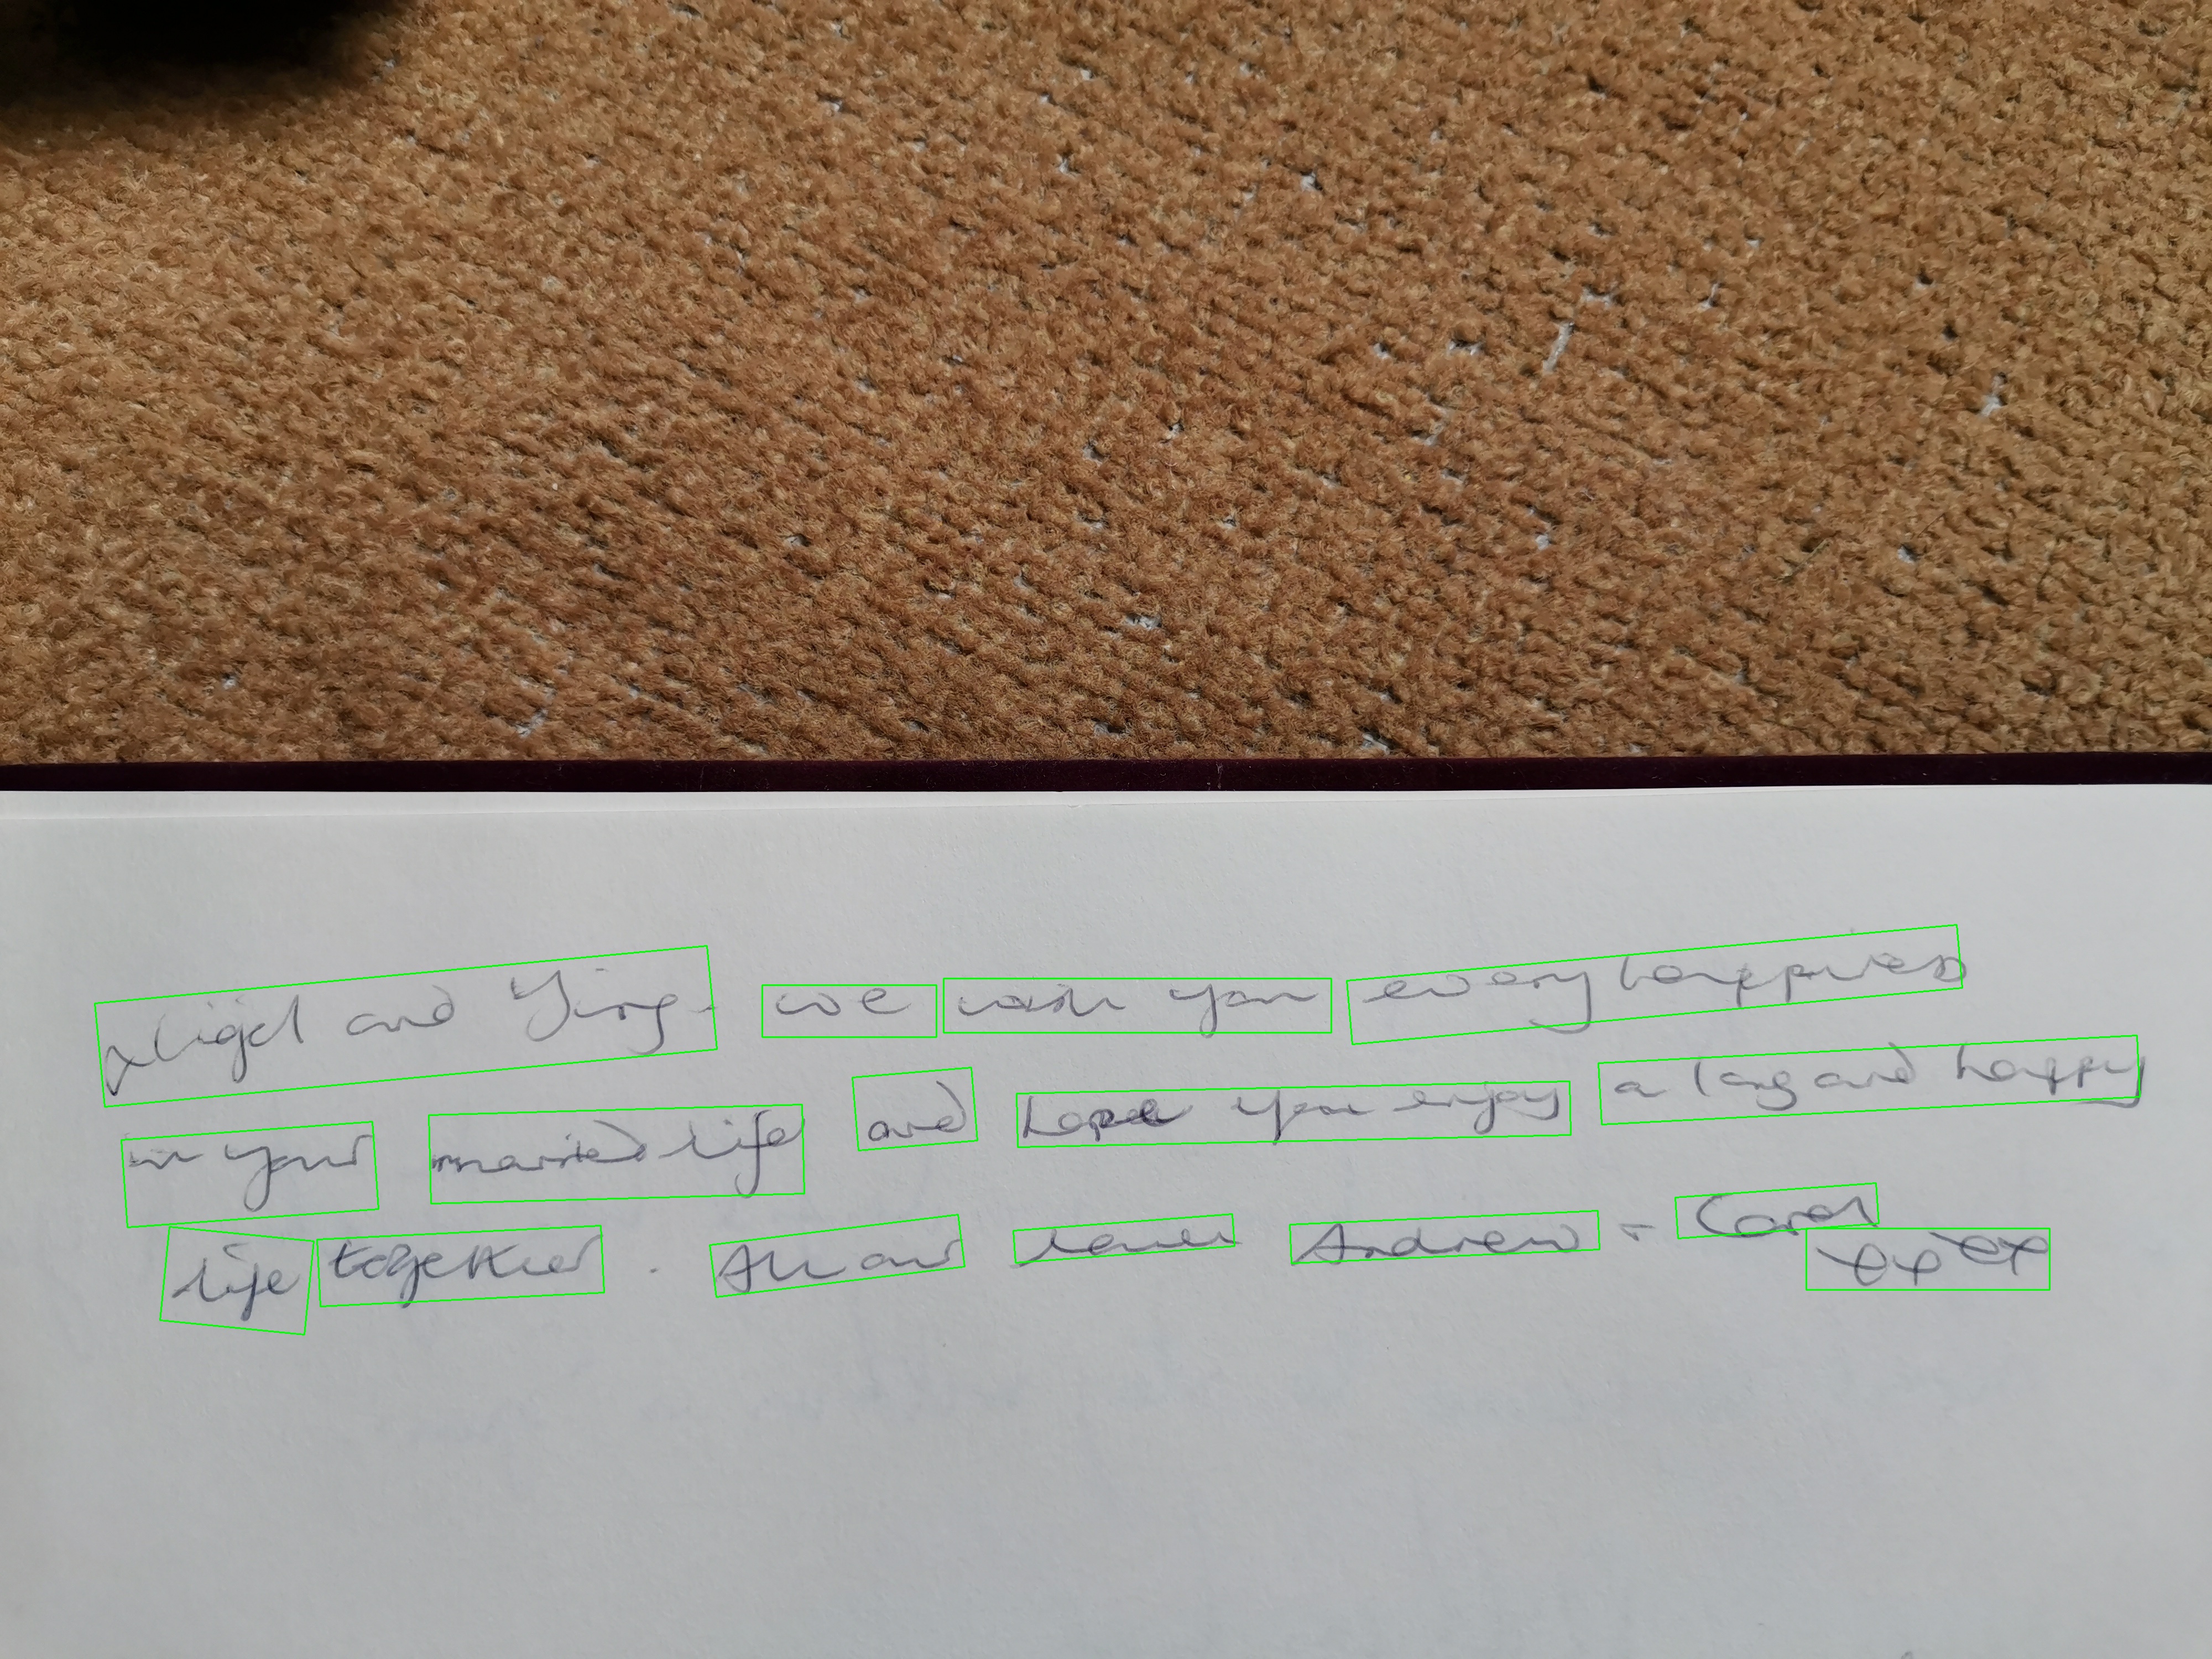 Nigel and Ying - we wish you every happiness
in your married life and hope you enjoy a long and happy
life together. All our love Andrew + Carol
xxxx